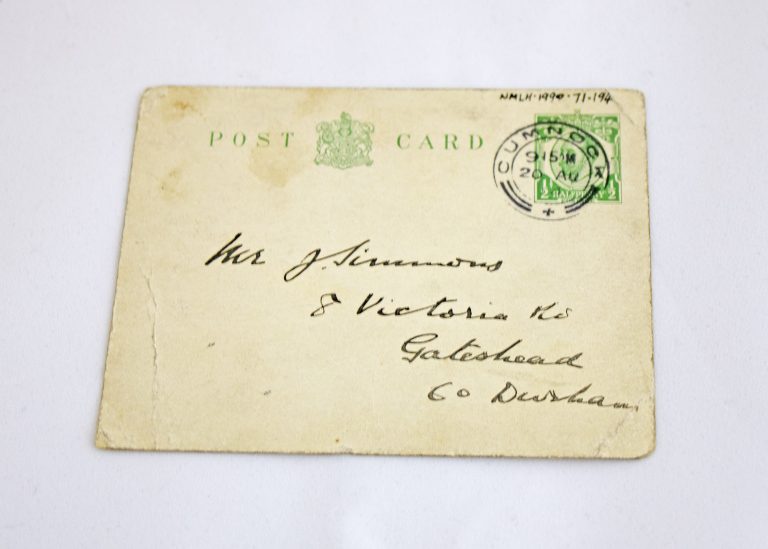 NMLH·1990·71·194
POST CARD
CUMNOCK
915
20 AU
½ HALFPENNY ½
Mr J. Simmons
8 Victoria Rd
Gateshead
Co Durham